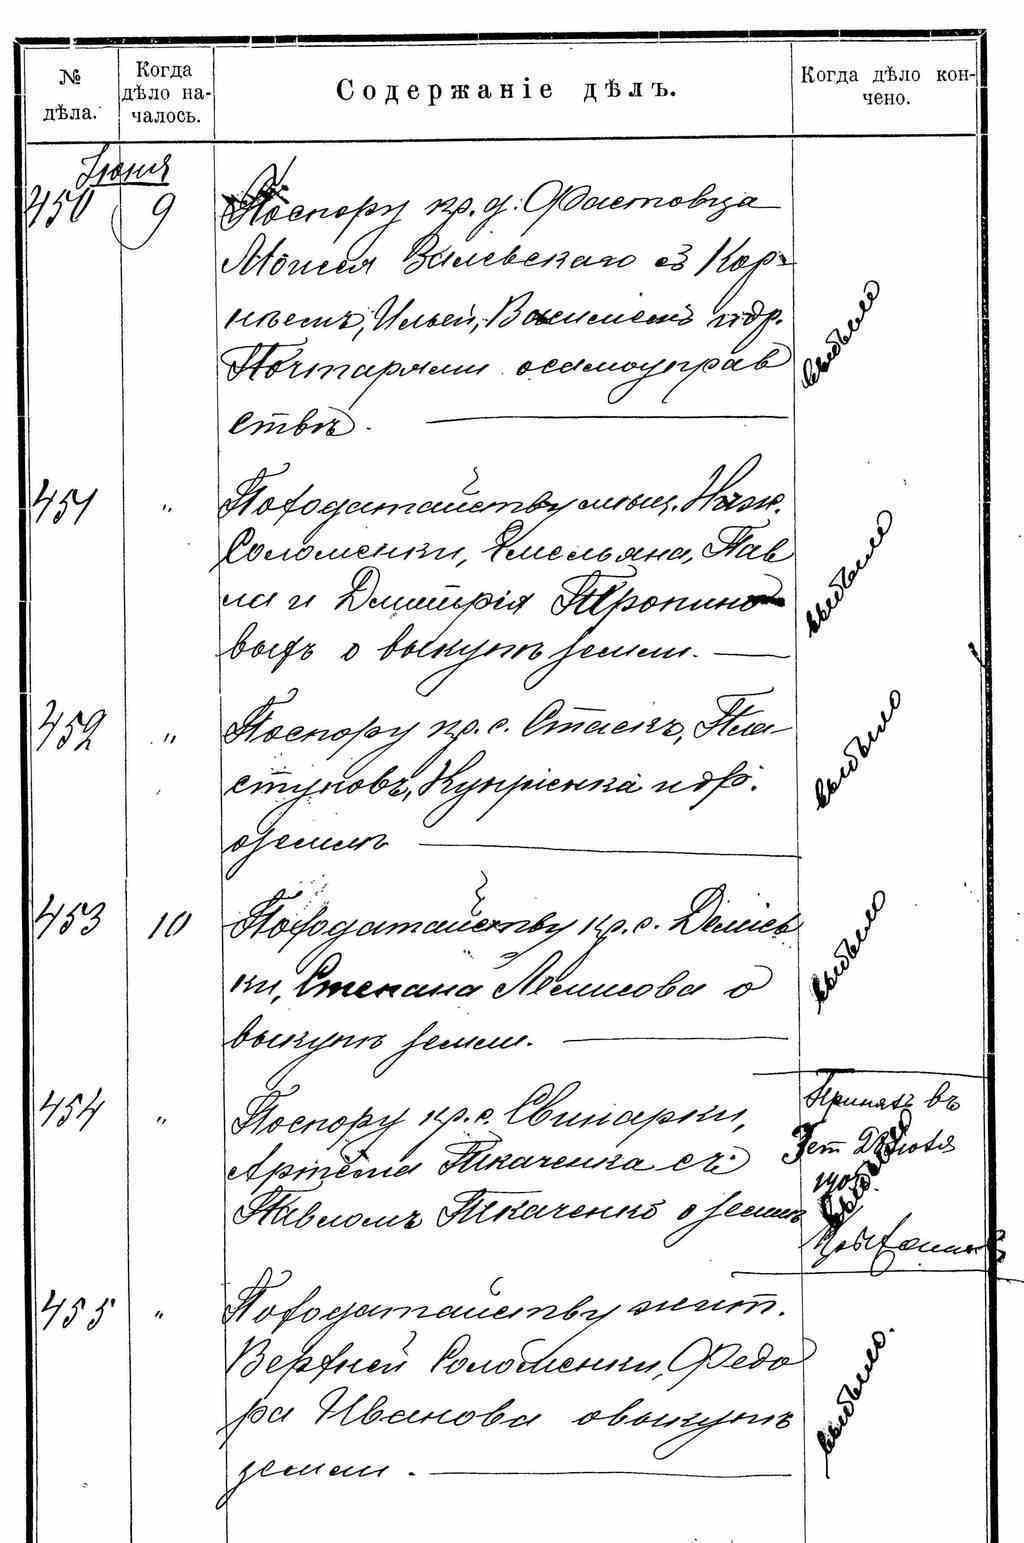 № дѣла.
Когда дѣло на-
чалось.
Содержаніе дѣлъ.
Когда дѣло кон-
чено.
Іюня
450 9 По спору кр. д. Фастовца
Моисея Валевскаго съ Кор-
нѣемъ, Ильей, и др.
Почтарями о самоуправ
ствѣ.
выбыло
451 " По ходатайству мѣщ. Ниж.
Соломенки, Емельяна, Пав
ла и Дмитрія Тропино
выхъ о выкупѣ земли.
выбыло
452 " По спору кр. с. Стаекъ, Пла-
стуновъ, Купріенка и др.
о землѣ
выбыло
453 10 По ходатайству кр. с. Деміев
ки, Степана Денисова о
выкупѣ земли.
выбыло
454 " По спору кр. с. Свинарки,
Артёма Ткаченка съ
Павломъ Ткаченко о землѣ
Принялъ въ
выбыло
455 " По ходатайству жит.
Верхней Соломенки, Федо
ра Иванова о выкупѣ
земли.
выбыло.